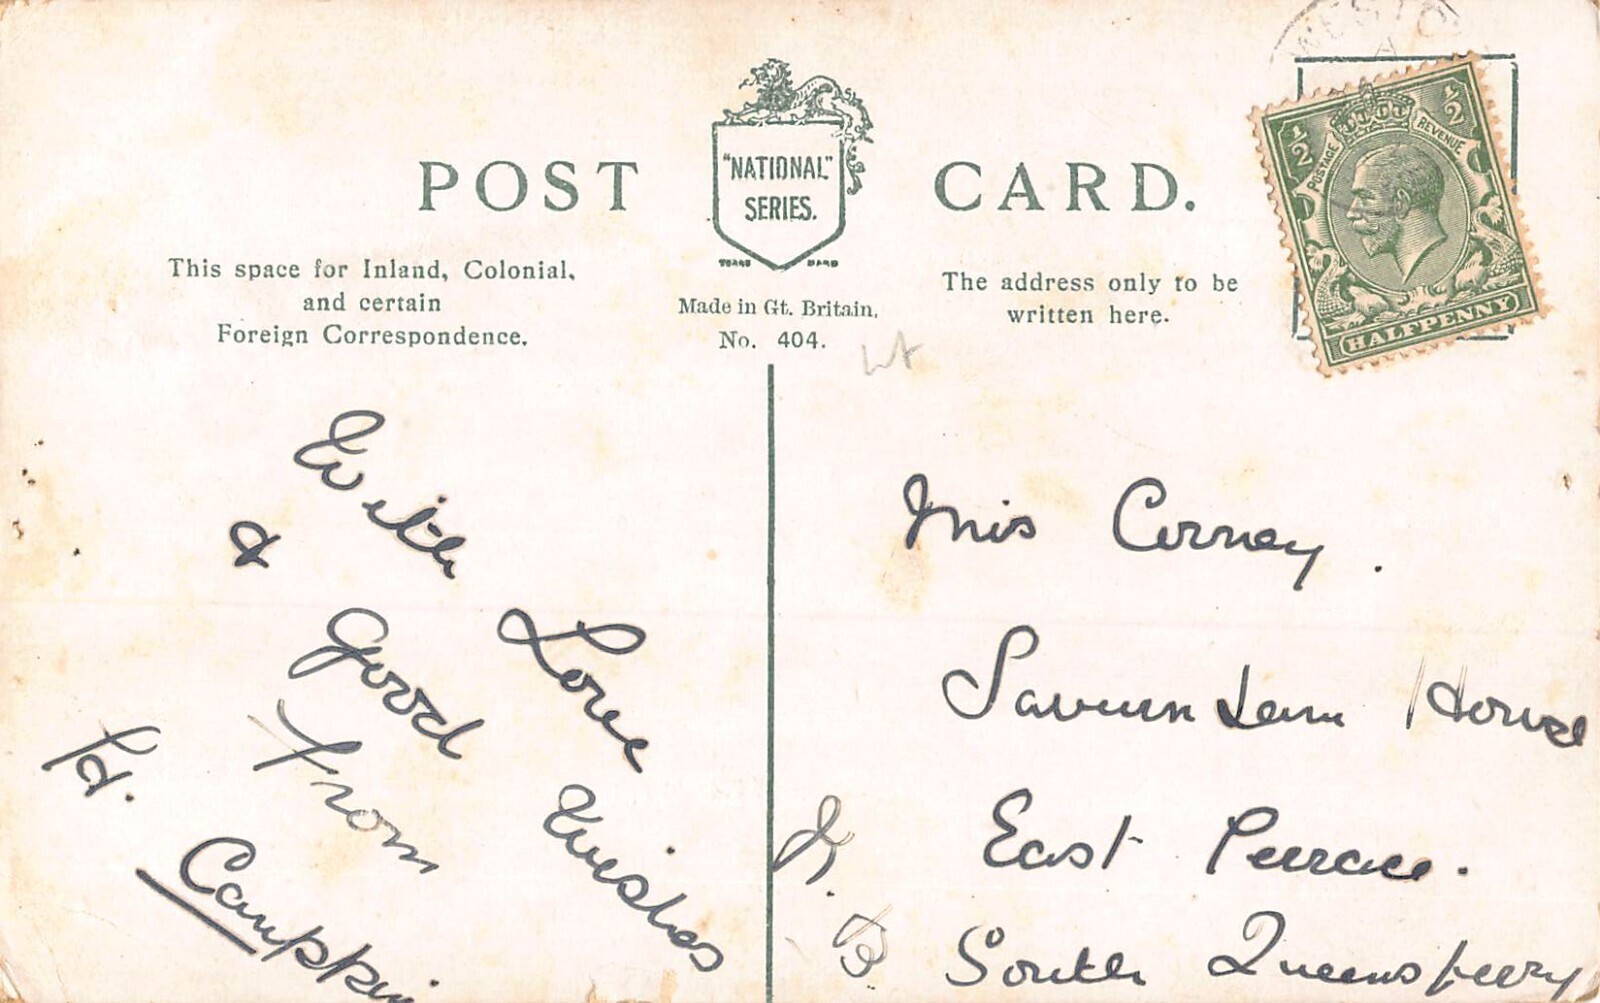 WESTO
POST CARD.
"NATIONAL"
SERIES.
TRADE MARK
This space for Inland, Colonial,
and certain
Foreign Correspondence.
Made in Gt. Britain,
No. 404.
The address only to be
written here.
½ ½
POSTAGE REVENUE
HALFPENNY
With Love
& Good Wishes
from
H. Campkin
Miss Corney.
House
East Terrace.
South Queensferry
N. B.